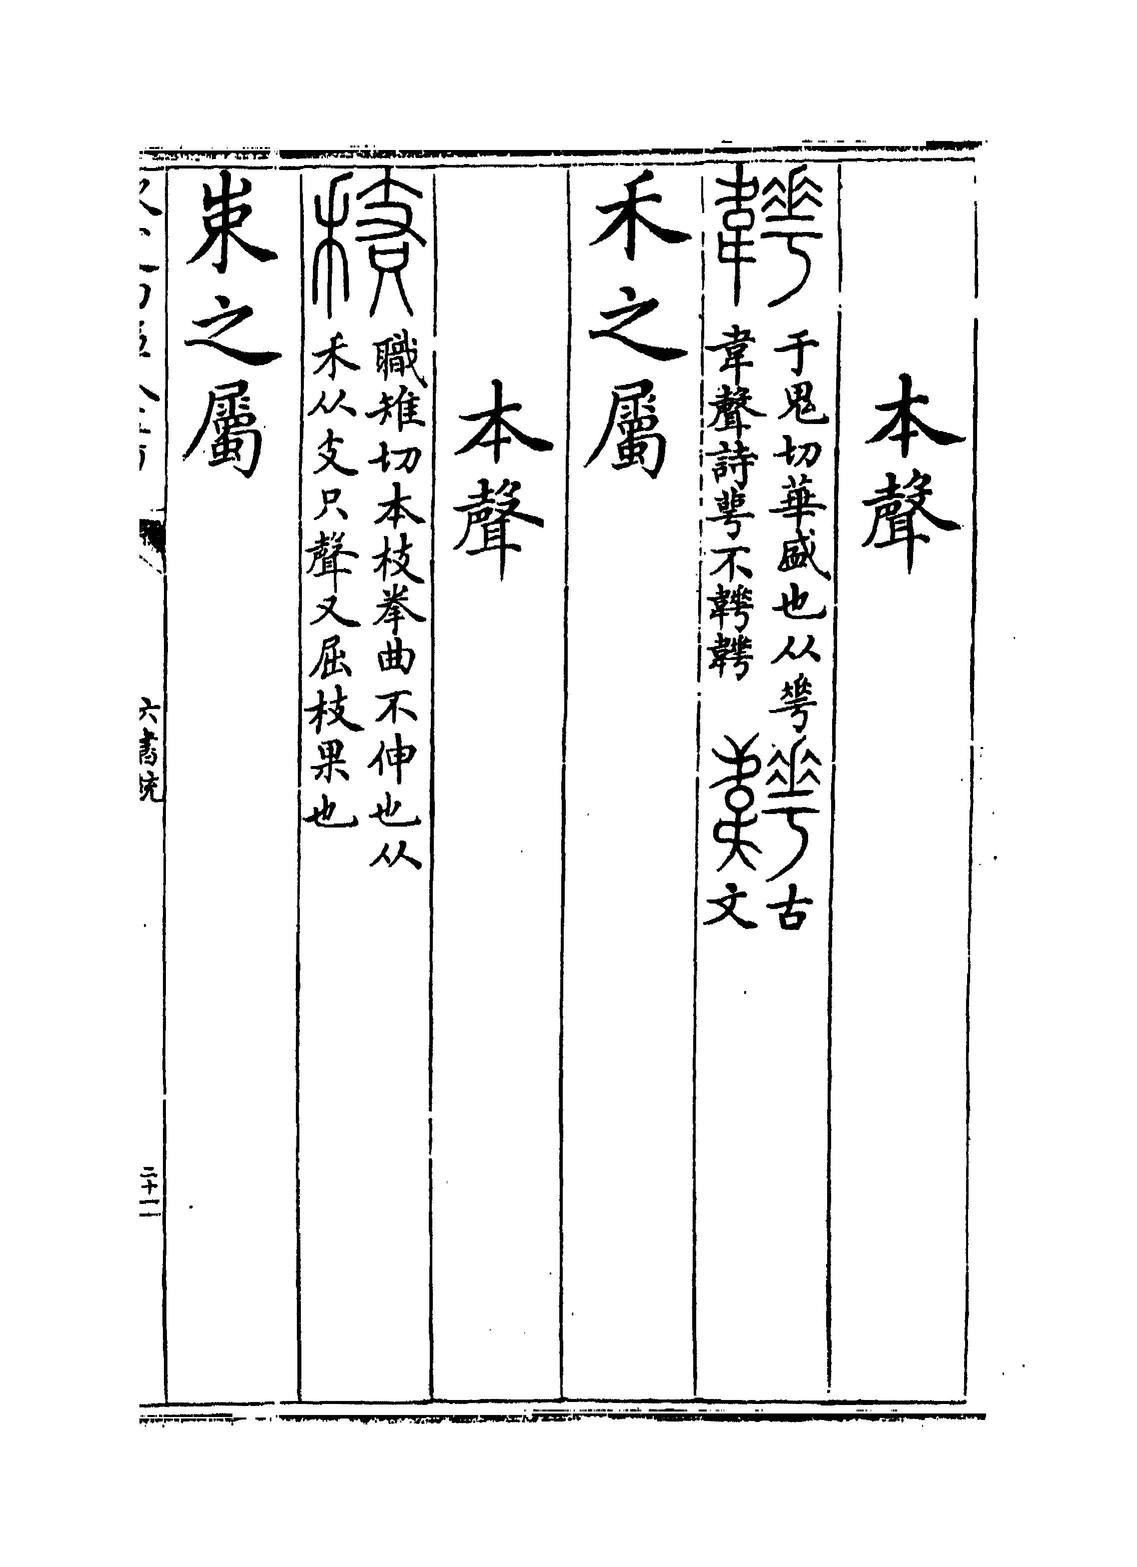 本聲
韡
于鬼切華盛也从𠌶
韋聲詩萼不韡韡
古文
禾之屬
本聲
𥡴
職雉切本枝拳曲不伸也从
禾从支只聲又屈枝果也
之屬
六書統
二十一